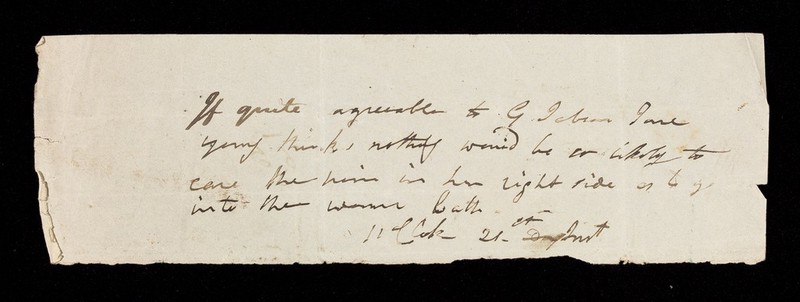 If quite agreeable to G. Jane
thinks nothing would be so likely to
cure the pain in her right side as to go
into the warm bath
11 oClok 21st Inst